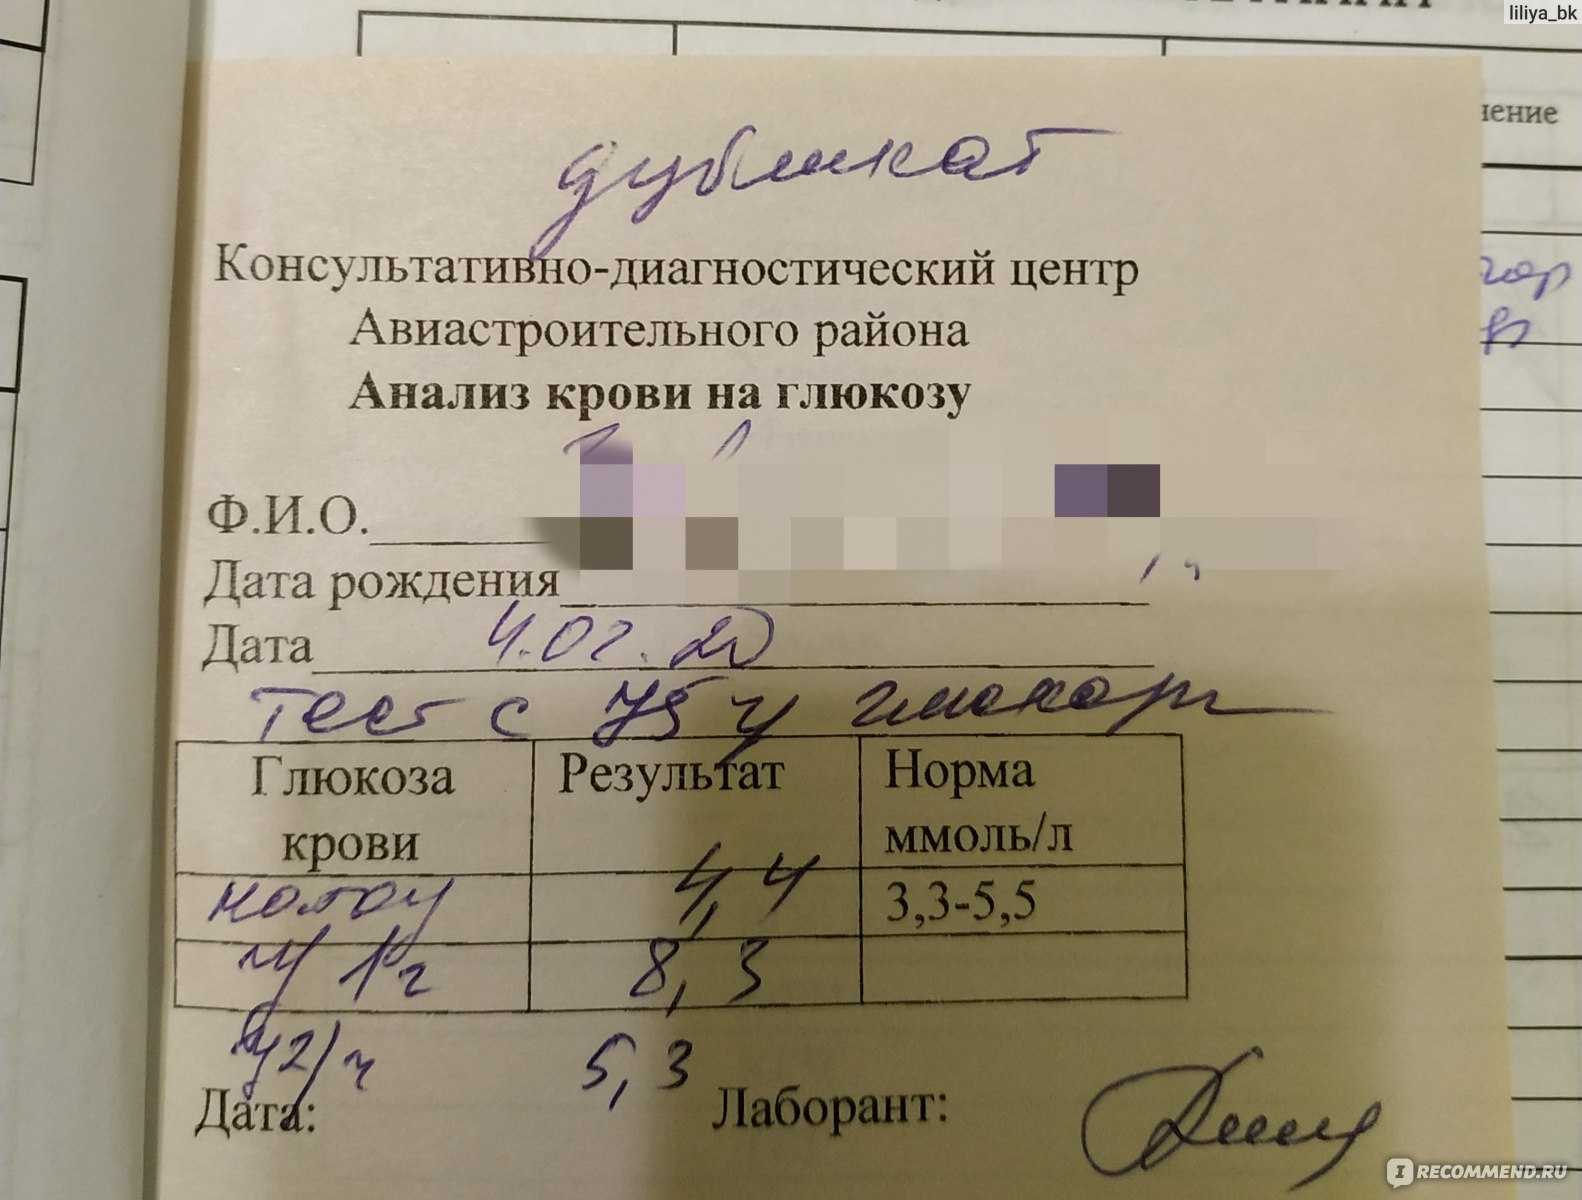 liliya_bk
нение
дубликат
Консультативно-диагностический центр
Авиастроительного района
Анализ крови на глюкозу
Ф.И.О.
Дата рождения
Дата 4.02.20
тест с 75 г глюкозы
Глюкоза крови Результат Норма ммоль/л
натощ 4,4 3,3-5,5
ч/з 1 ч 8,3
ч/з 2 ч 5,3
Дата: Лаборант:
IRECOMMEND.RU